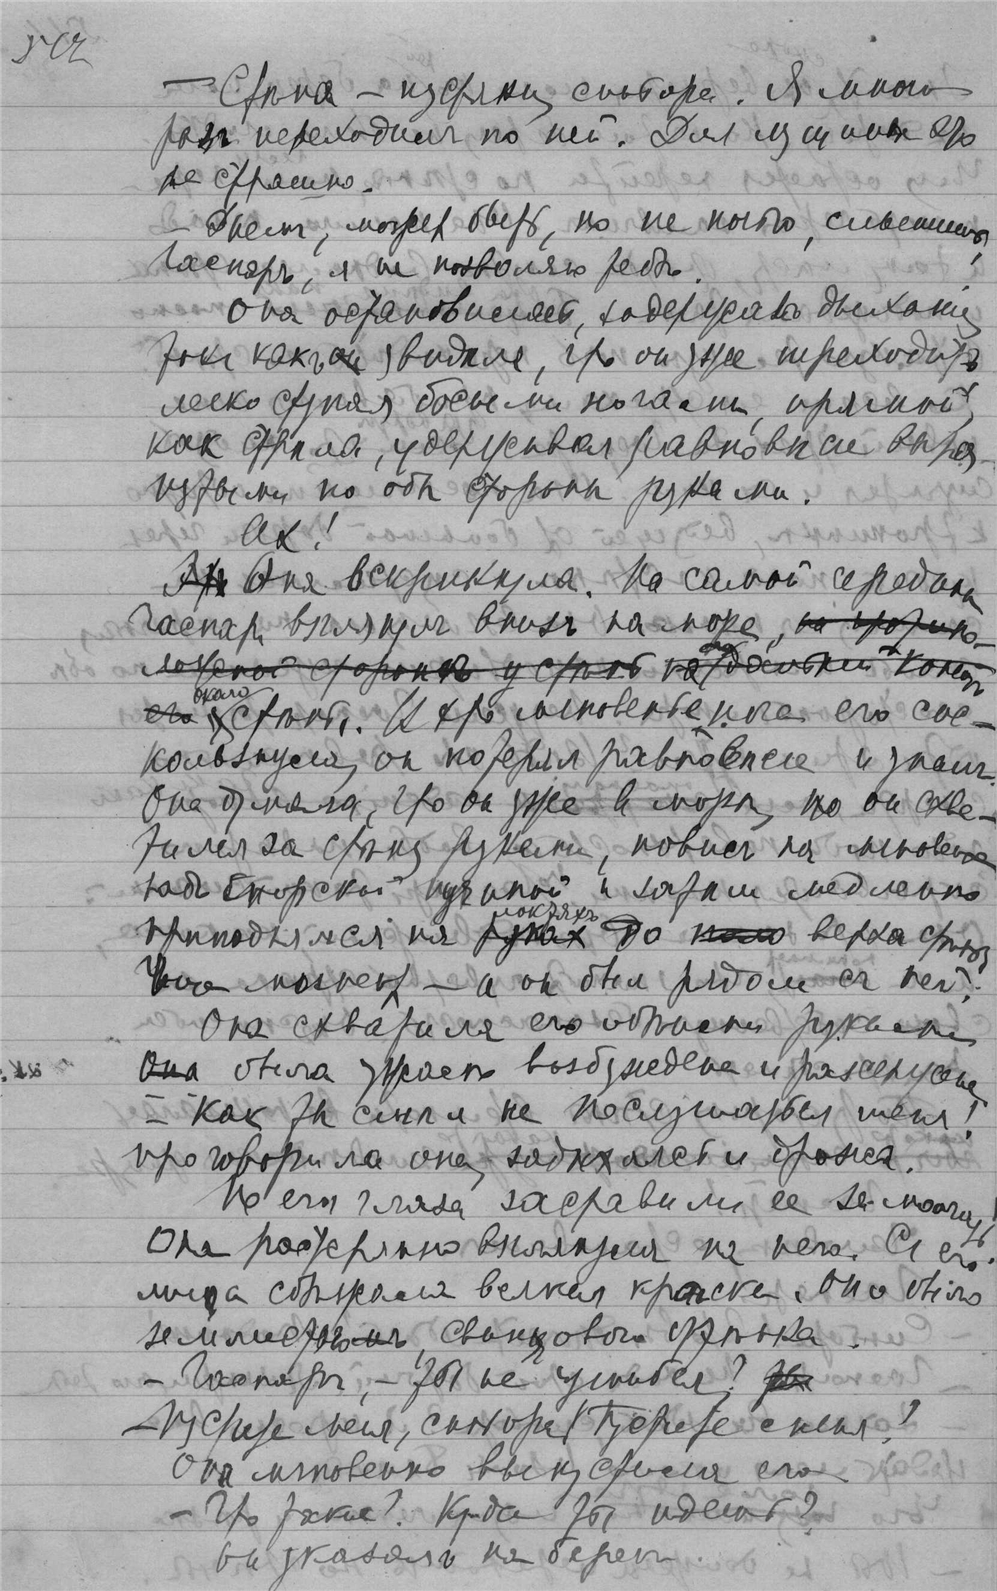 542
— Стѣна — пустяки, синьора. Я много
разъ переходилъ по ней. Для мущины это
не страшно.
— Днемъ, можетъ быть, но не ночью, слышишь,
Гаспаръ, я не позволяю тебѣ.
Она остановилась, задержавъ дыханіе,
такъ какъ увидѣла, что онъ уже переходитъ
легко ступая босыми ногами, прямой,
какъ стрѣла, удерживая равновѣсіе вытя-
нутыми по обѣ стороны руками.
Ах!
Она вскрикнула. На самой серединѣ
Гаспаръ взглянулъ внизъ на море, на противопо-
ложной стороны у стѣны
его около стѣны. В это мгновенье нога его сос-
кользнула, онъ потерялъ равновѣсіе и упалъ.
Она думала, что онъ уже в морѣ, но он схва-
тился за стѣну руками, повисъ на мгновенье
надъ морской пучиной и затѣмъ медленно
приподнялся на руках локтяхъ до верха стѣны
моментъ — и он былъ рядомъ съ ней.
Она схватила его обѣими руками
Она была ужасно возбуждена и разсержена
— Какъ ты смѣлъ не послушаться меня!
проговорила она, задыхаясь и дрожа.
Но его глаза заставили ее замолчать!
Она растерянно взглянула на него. Съ его
лица сбѣжала всякая краска. Оно было
землистаго, свинцоваго оттѣнка.
— Гаспаръ, — ты не ушибся?
— Пустите меня, синьора! Пустите меня!
Она мгновенно выпустила его
— Что такое? Куда ты идешь?
Он указалъ на берегъ.